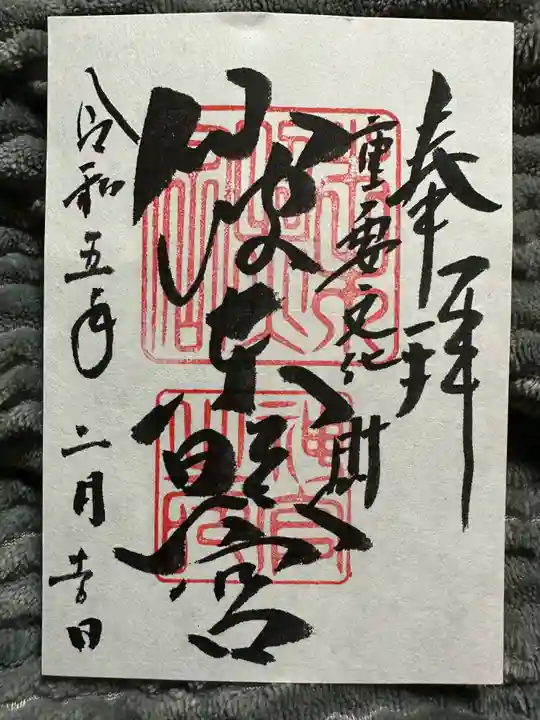 奉拝
重要文化財
仙波東照宮
令和五年 二月吉日